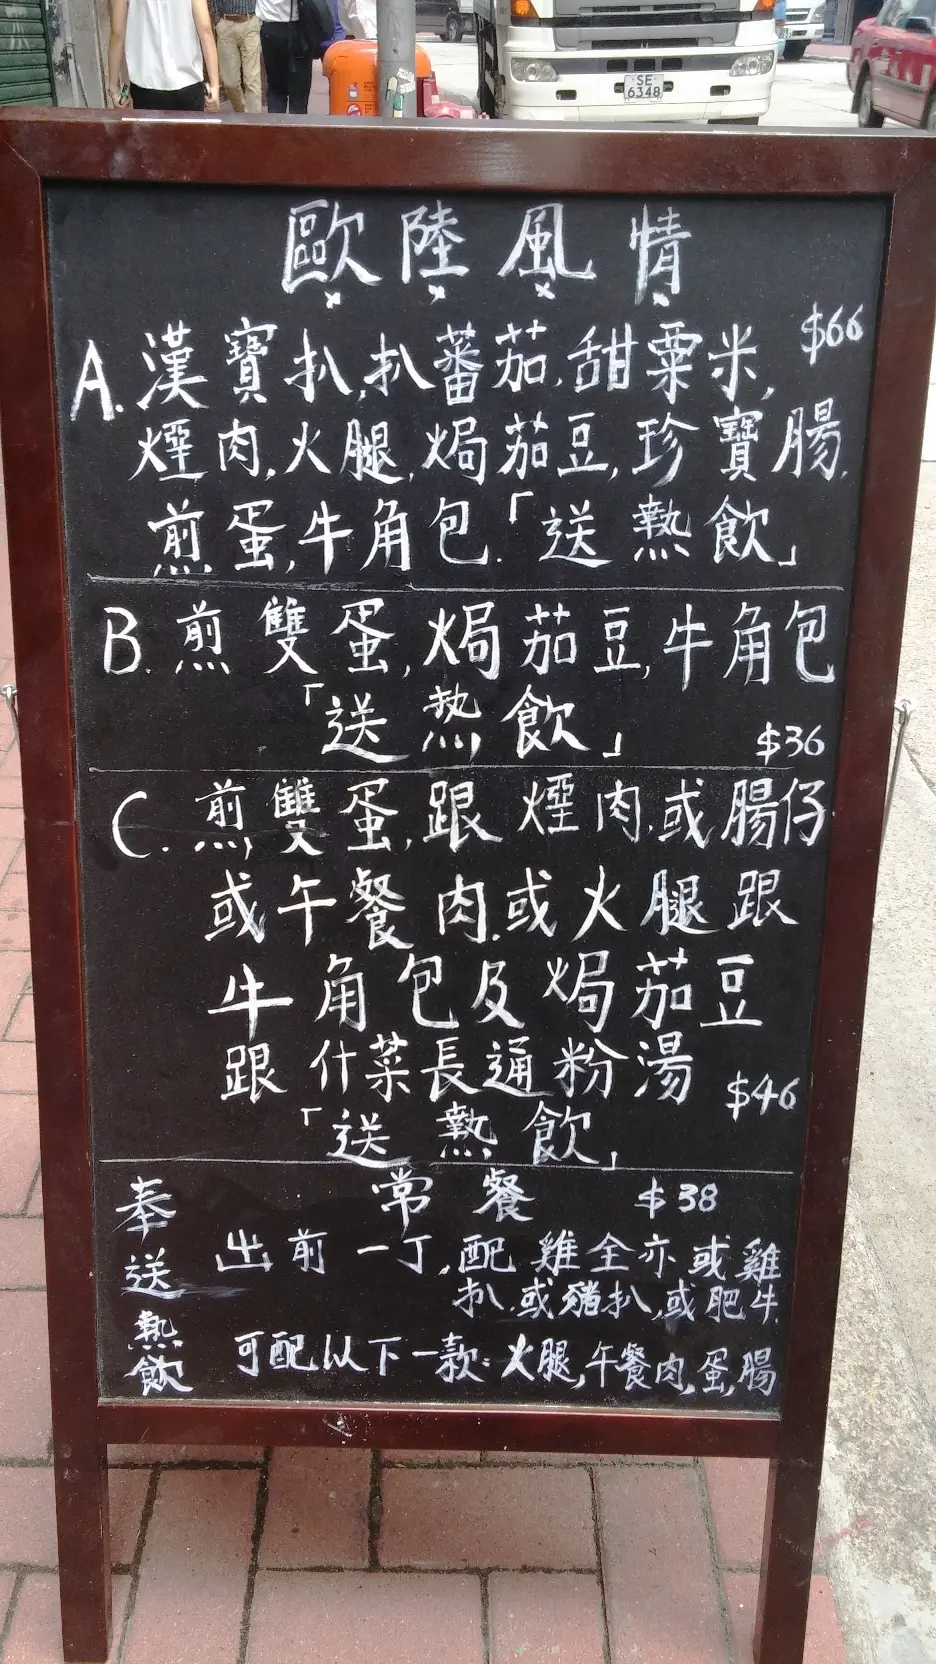 SE
6348
歐陸風情
A. 漢寶扒,扒蕃茄,甜粟米, $66
煙肉,火腿,焗茄豆,珍寶腸,
煎蛋,牛角包.「送熱飲」
B. 煎雙蛋,焗茄豆,牛角包
「送熱飲」 $36
C. 煎雙蛋,跟煙肉,或腸仔
或午餐肉.或火腿跟
牛角包及焗茄豆
跟什菜長通粉湯 $46
「送熱飲」
常餐 $38
奉送熱飲
出前一丁,配雞全亦或雞
扒.或豬扒,或肥牛.
可配以下一款:火腿,午餐肉,蛋,腸